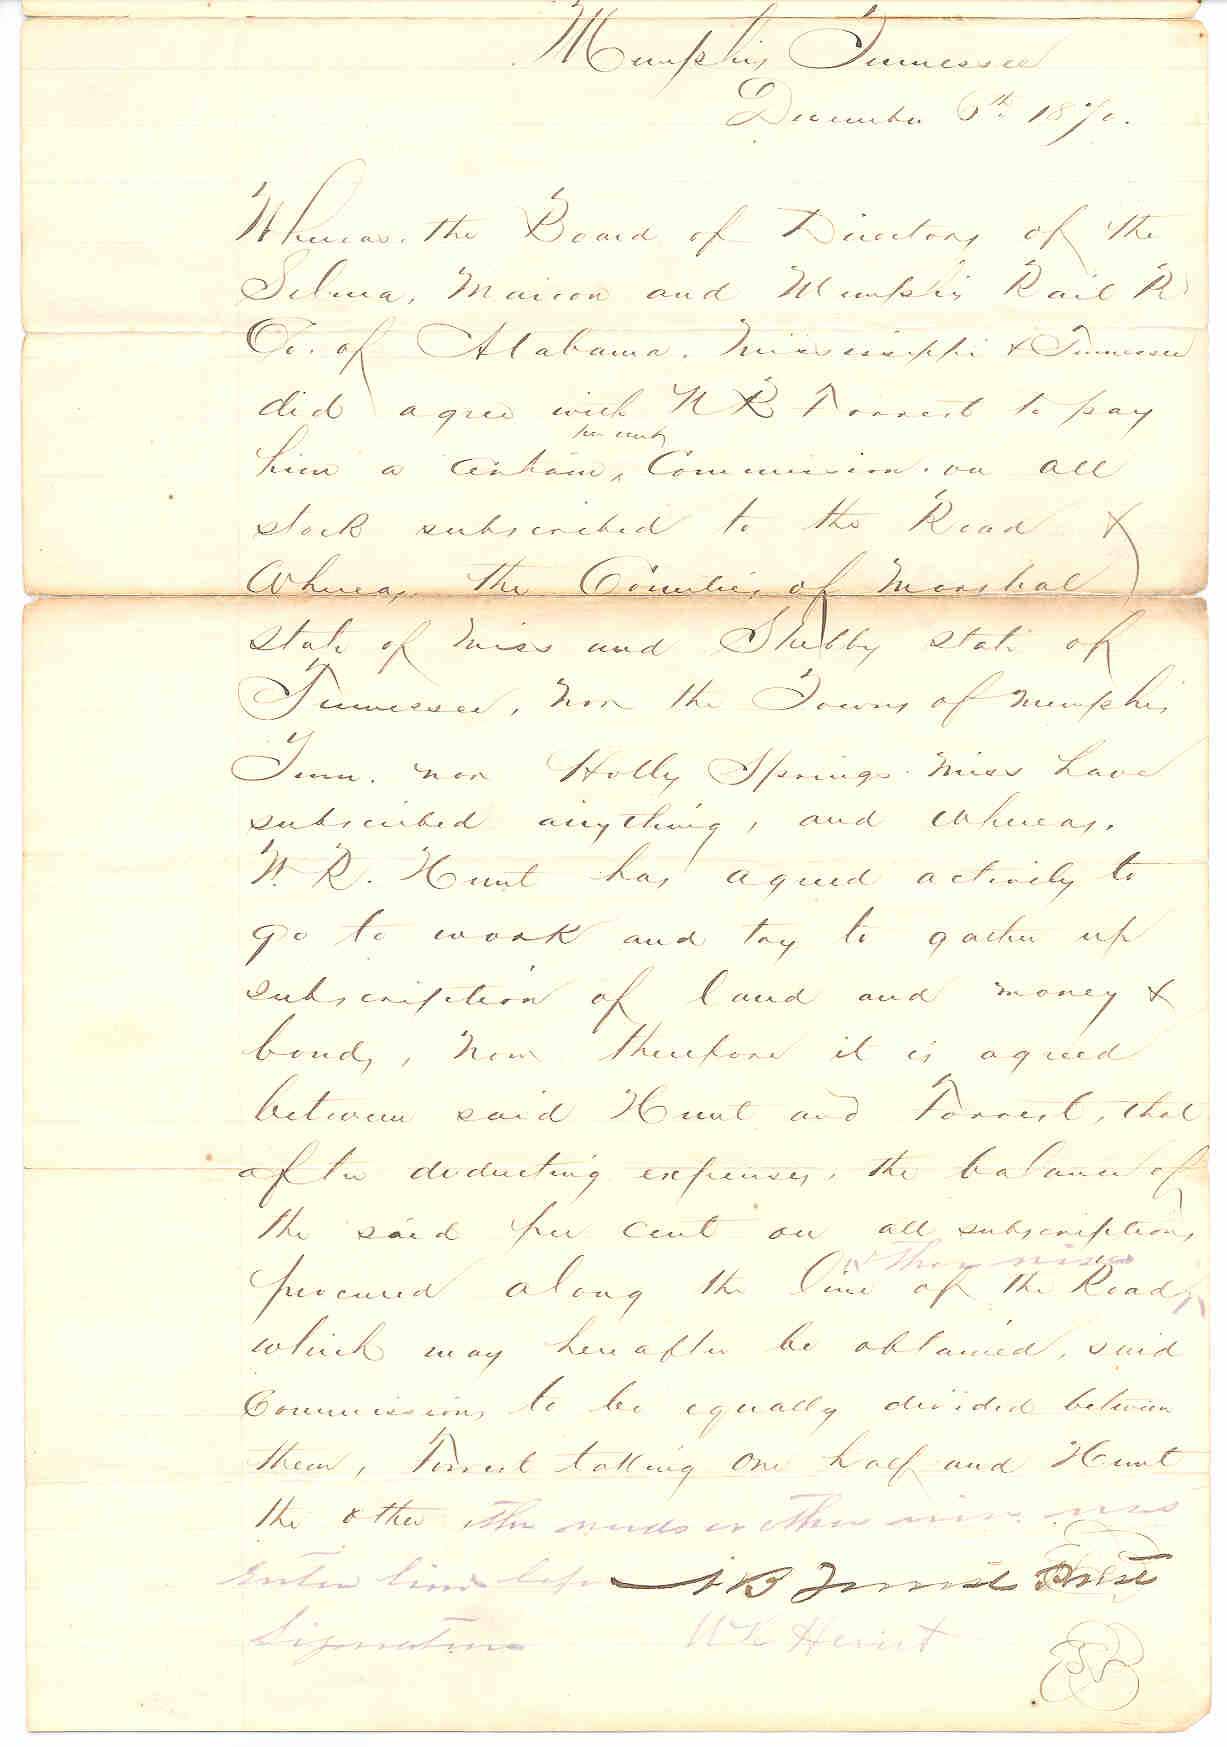 Memphis Tennessee
December 6th 1870.
Whereas. the Board of Directors of the
Selma, Marion and Memphis Rail R
Co. of Alabama. Mississippi & Tennessee
did agree with N B Forrest to pay
per cent
him a certain Commission. on all
stock subscribed to the Road &
Whereas the Counties of Marshal
state of Miss and Shelby state of
Tennessee, nor the Towns of Memphis
Tenn. nor Holly Springs Miss have
subscribed anything, and Whereas.
W. R. Hunt has agreed actively to
go to work and try to gather up
subscription of land and money &
bonds, Now therefore it is agreed
between said Hunt and Forrest, that
after deducting expenses, the balance of
the said per cent on all subscriptions
or otherwise
procured along the line of the Road
which may hereafter be obtained, said
Commissions to be equally divided between
them, Forrest taking one half and Hunt
the other the words or otherwise was
enter lined before
N B Forrest Prest
Signature
W R Hunt